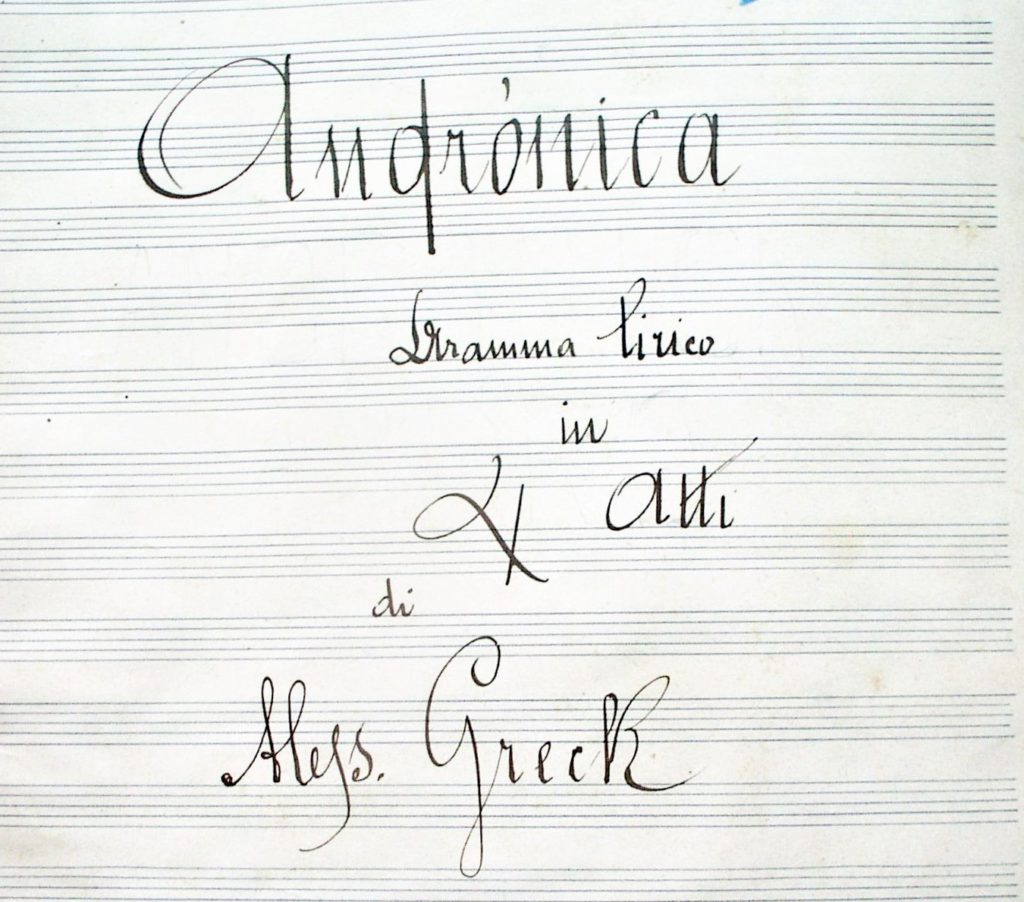 Andrònica
Dramma lirico
in
4 Atti
di
Aless. Greck